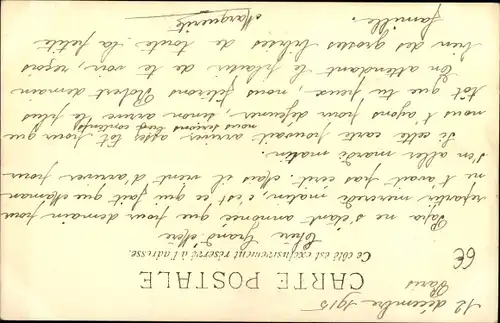 12 décembre 1915
Paris
CARTE POSTALE
Ce côté est exclusivement réservé à l'adresse.
6€
Chère Grand Mère
Papa ne s'étant annoncé que pour demain pour
repartir mercredi matin, c'est ce qui fait que Maman
ne t'avait pas écrit. Mais il vient d'arriver pour
s'en aller mardi matin.
Si cette carte pouvait arriver assez tôt pour que
nous serions très contents
nous t'ayons pour déjeuner, sinon arrive le plus
tôt que tu peux, nous fêterons Robert demain
En attendant le plaisir de te voir, reçois
bien des grosses bises de toute la petite
famille.
Marguerite